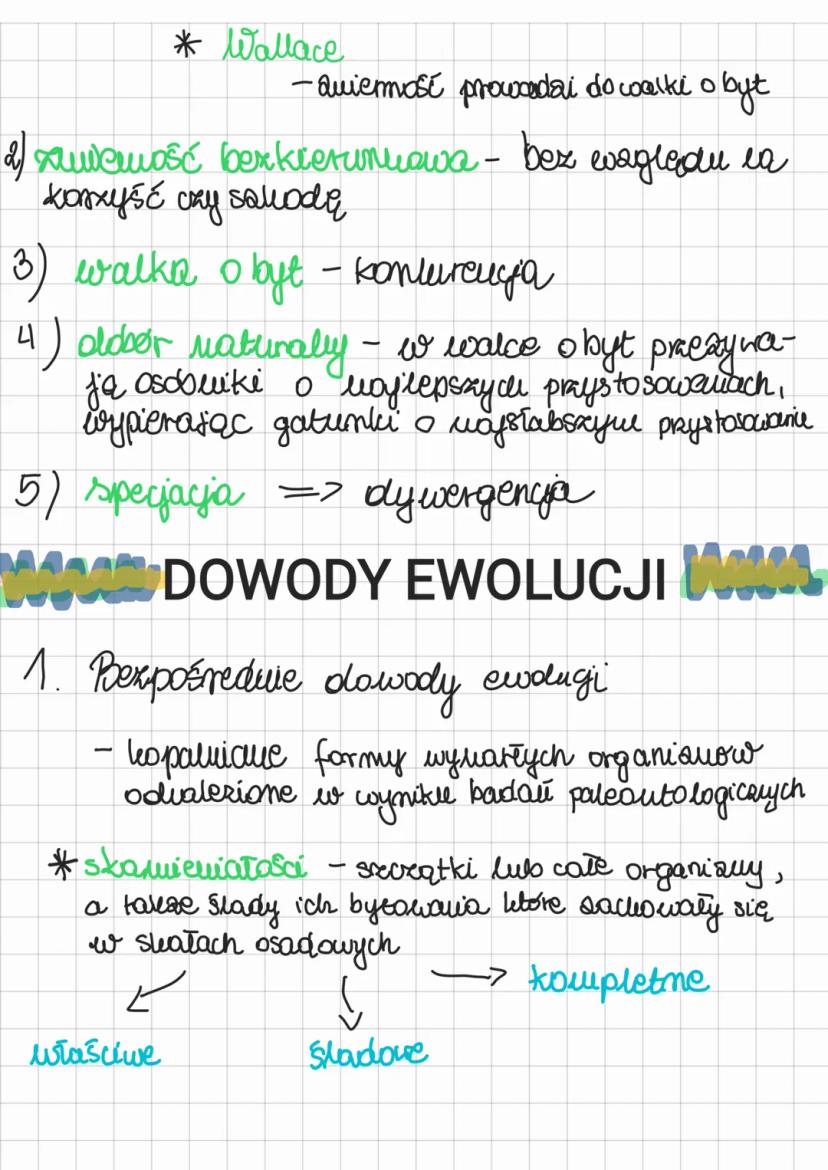 * Wallace
- zmienność prowadzi do walki o byt
2) zmienność bezkierunkowa - bez względu na
korzyść czy szkodę
3) walka o byt - konkurencja
4) dobór naturalny - w walce o byt przeżywa-
ją osobniki o najlepszych przystosowaniach,
wypierając gatunki o najsłabszym przystosowanie
5) specjacja => dywergencja
DOWODY EWOLUCJI
1. Bezpośrednie dowody ewolucji
- kopalniane formy wymarłych organizmów
odnalezione w wyniku badań paleontologicznych
* skamieniałości - szczątki lub całe organizmy,
a także ślady ich bytowania które zachowały się
w skałach osadowych
→ kompletne
właściwe śladowe